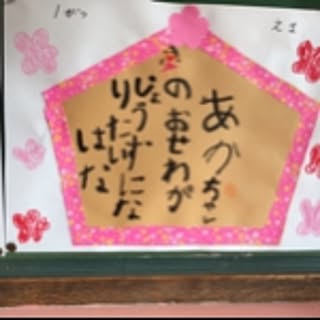 1がつ
えま
あかちゃん
のおせわが
じょうずにな
りたい
はな